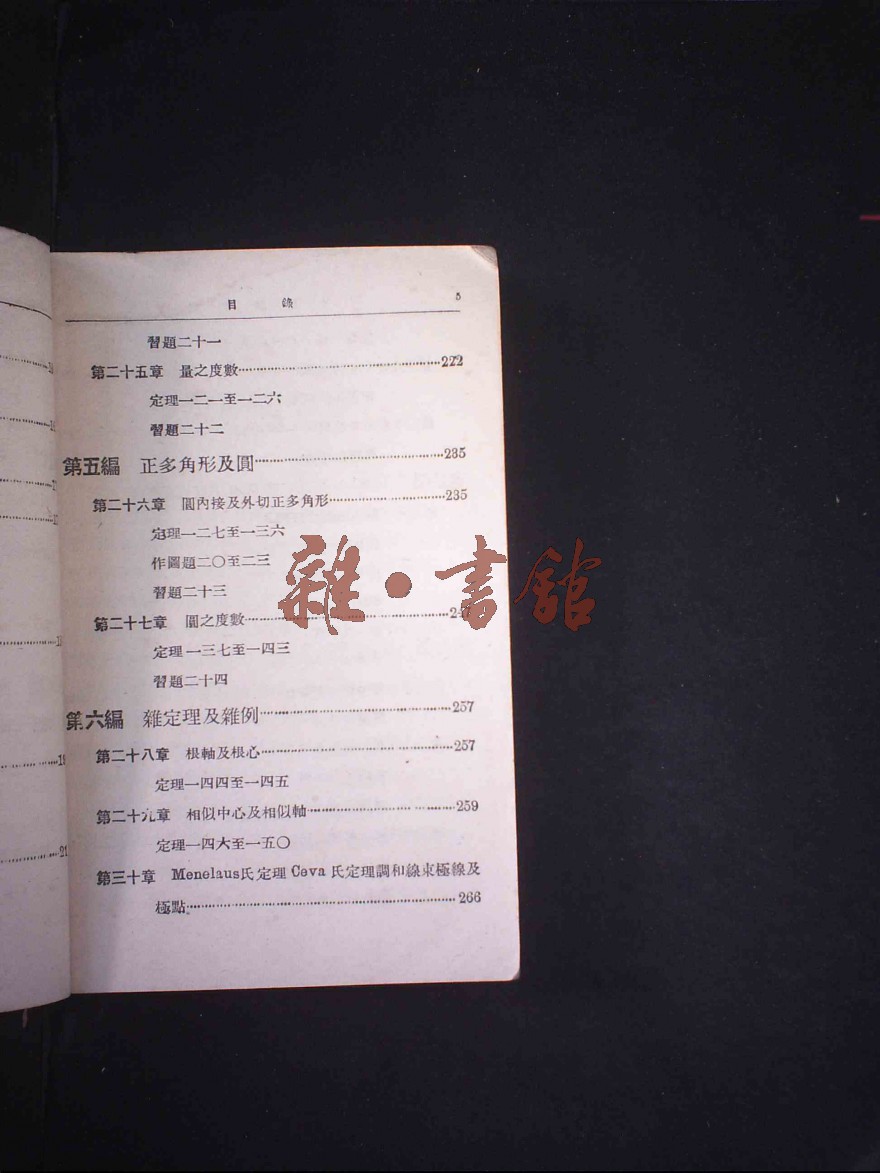 目 錄 5
習題二十一
第二十五章 量之度數 222
定理一二一至一二六
習題二十二
第五編 正多角形及圓 235
第二十六章 圓內接及外切正多角形 235
定理一二七至一三六
作圖題二〇至二三
習題二十三
第二十七章 圓之度數
定理一三七至一四三
習題二十四
第六編 雜定理及雜例 257
第二十八章 根軸及根心 257
定理一四四至一四五
第二十九章 相似中心及相似軸 259
定理一四六至一五〇
第三十章 Menelaus氏定理 Ceva 氏定理調和線束極線及
極點 266
雜·書館